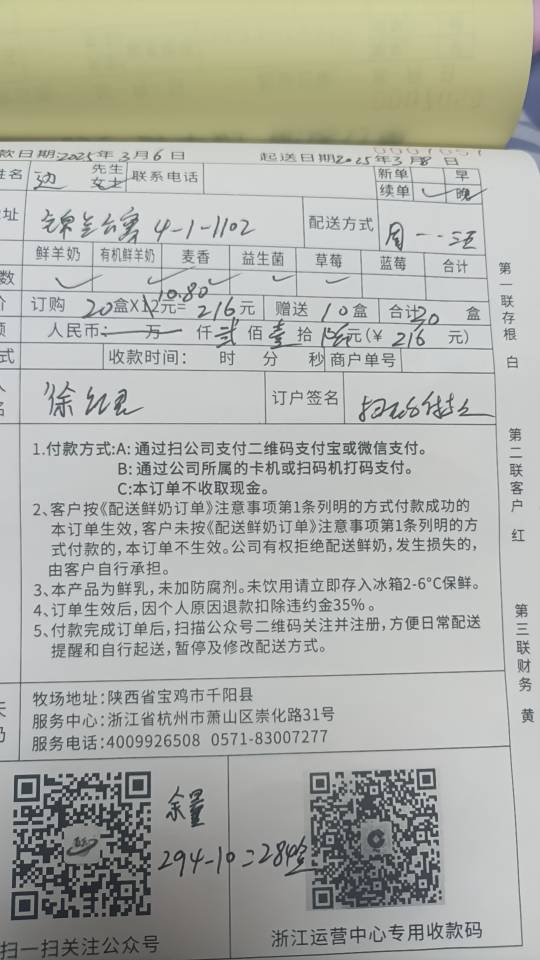 款日期:2025年3月6日 起送日期2025年3月8日
姓名 边 先生 女士 联系电话 新单 早
续单 晚
址 4-1-1102 配送方式 周一-
鲜羊奶 有机鲜羊奶 麦香 益生菌 草莓 蓝莓 合计
数
10.80
订购 20盒X12元=216元 赠送 10盒 合计 盒
人民币: 万 仟贰佰壹拾 元(¥ 216 元)
式 收款时间: 时 分 秒 商户单号
徐 订户签名
1.付款方式:A: 通过扫公司支付二维码支付宝或微信支付。
B: 通过公司所属的卡机或扫码机打码支付。
C:本订单不收取现金。
2、客户按《配送鲜奶订单》注意事项第1条列明的方式付款成功的
本订单生效,客户未按《配送鲜奶订单》注意事项第1条列明的方
式付款的,本订单不生效。公司有权拒绝配送鲜奶,发生损失的,
由客户自行承担。
3、本产品为鲜乳,未加防腐剂。未饮用请立即存入冰箱2-6°C保鲜。
4、订单生效后,因个人原因退款扣除违约金35%。
5、付款完成订单后,扫描公众号二维码关注并注册,方便日常配送
提醒和自行起送,暂停及修改配送方式。
牧场地址:陕西省宝鸡市千阳县
服务中心:浙江省杭州市萧山区崇化路31号
服务电话:4009926508 0571-83007277
余量
294-10=284盒
扫一扫关注公众号
浙江运营中心专用收款码
第一联存根 白
第二联客户 红
第三联财务 黄